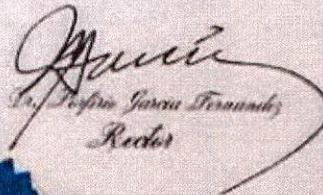 Dr. Porfirio García Fernández
Rector